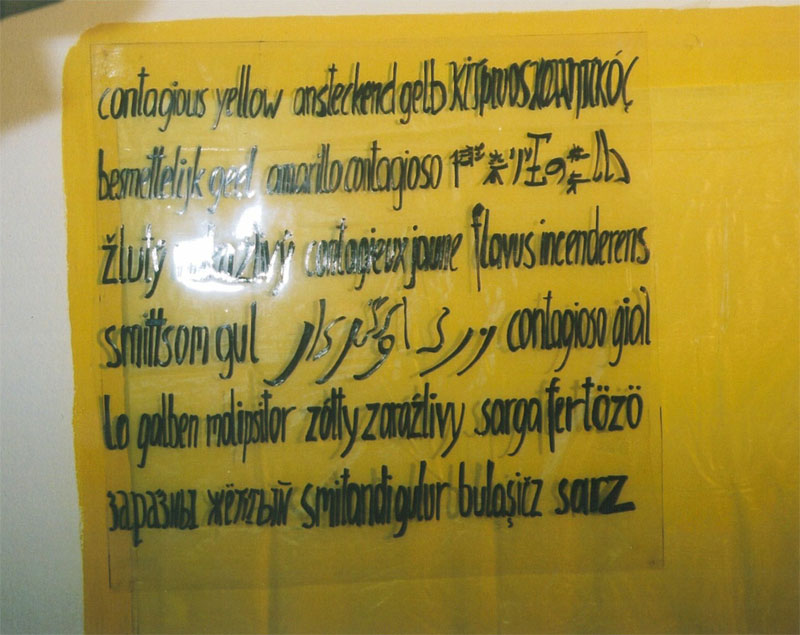 contagious yellow ansteckend gelb
besmettelijk geel amarillo contagioso
žlutý contagieux jaune flavus incenderens
smittsom gul contagioso gial
lo galben molipsitor zólty zaraźlivy sarga fertözö
заразны жёлтый smitandi gulur bulaşicz sarz